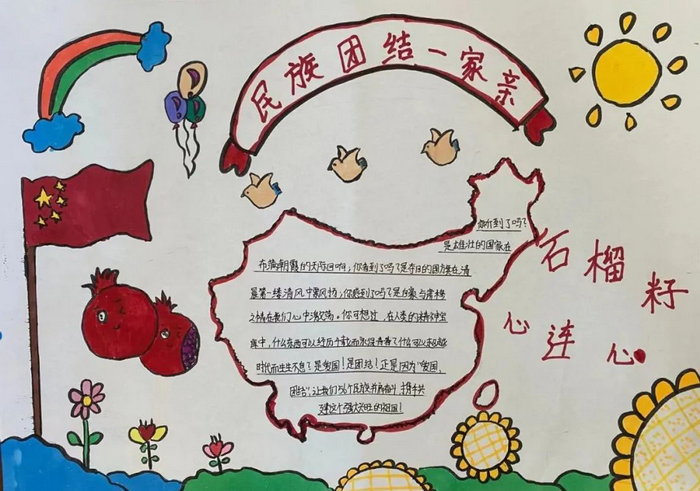 民族团结一家亲
你听到了吗?
是雄壮的国歌在
布满朝霞的天际回响;你看到了吗?是夺目的国旗在清
晨第一缕清风中飘扬;你感到了吗?是
在我们心中激荡。你可想过,在人类的精神宝
库中,什么东西可以经历千载而永
时代而生生不息?是爱国!是团结!正是因为“爱国、
团结”,让我们56个民族并肩奋斗 携手共
建这个强大兴旺的祖国!
石榴籽
心连心